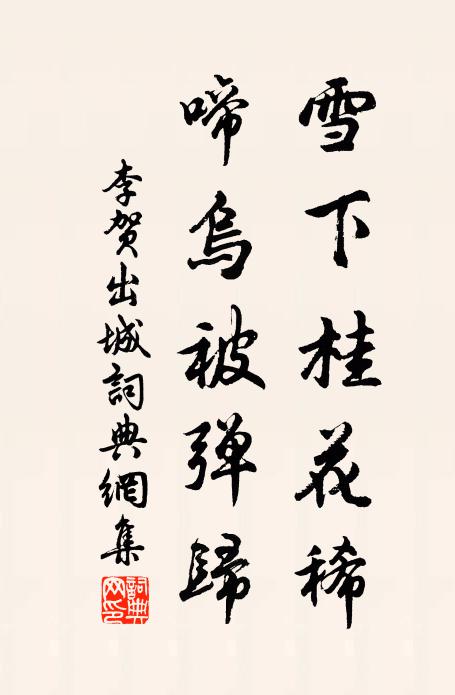 雪下桂花稀
啼烏被弹歸
李贺出城詞典網集
詞典网印